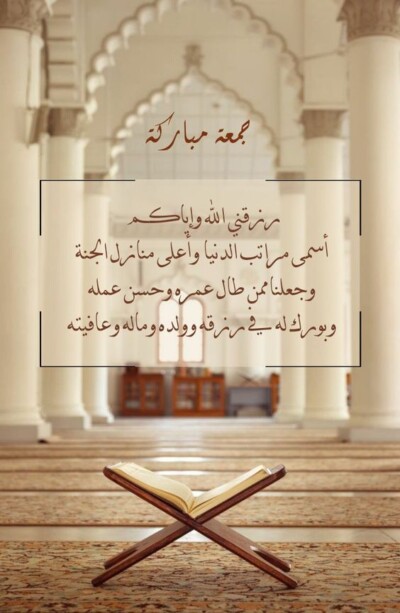 جمعة مباركة
رزقني الله وإياكم
أسمى مراتب الدنيا وأعلى منازل الجنة
وجعلنا ممن طال عمره وحسن عمله
وبورك له في رزقه وولده وماله وعافيته